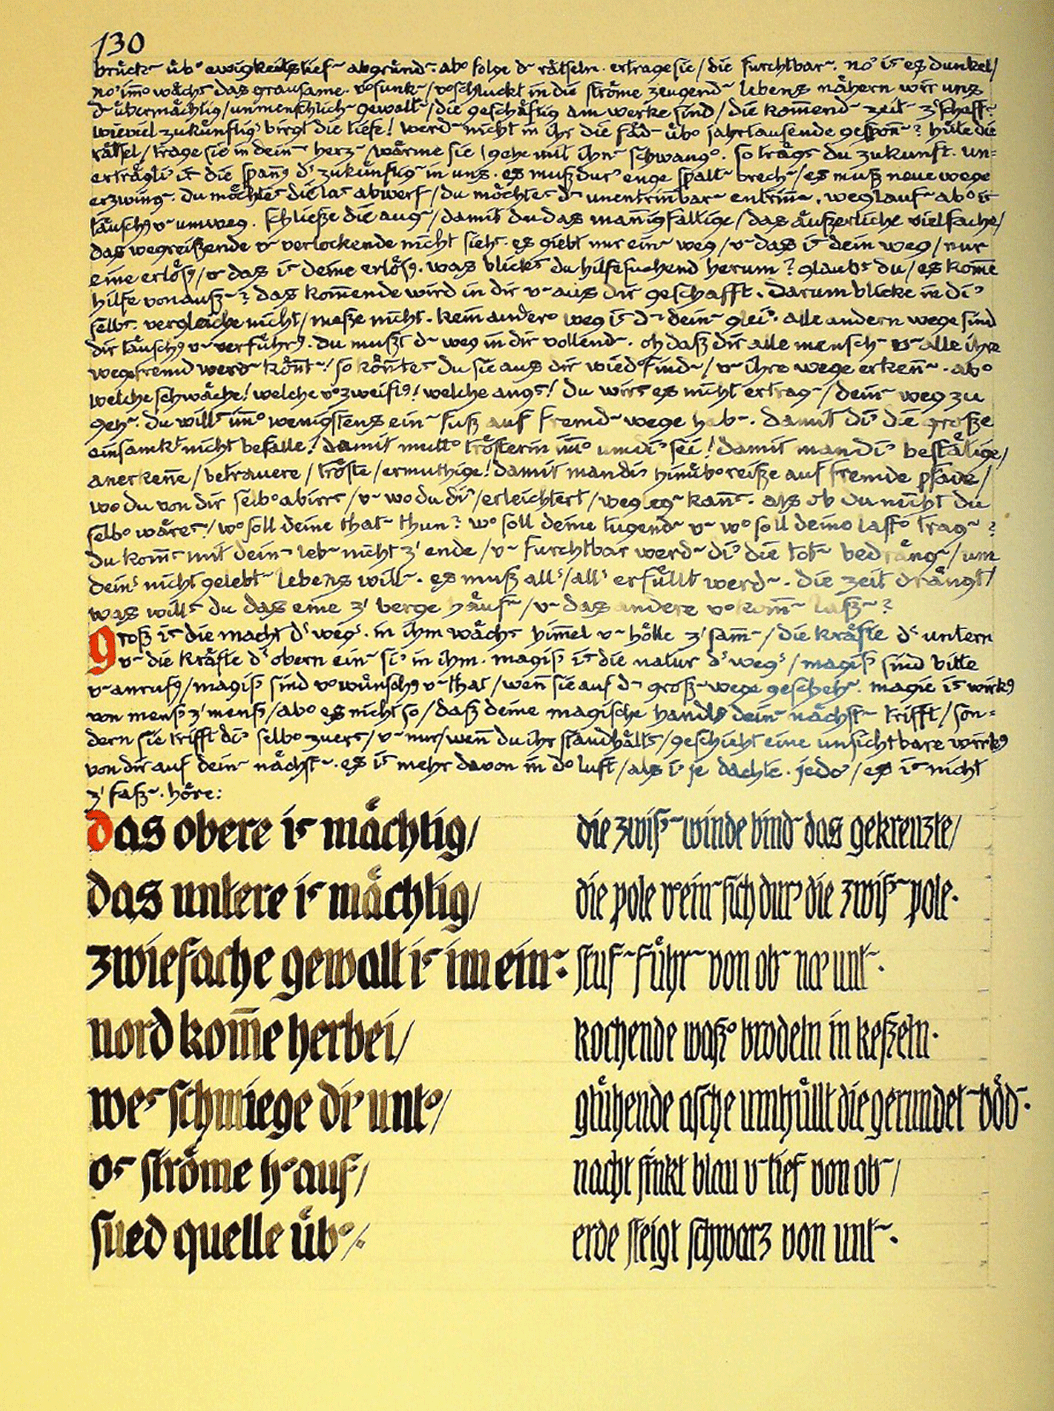 130
brück~ üb° ewigkeitstief~ abgründ~. ab° folge d~ rätseln. ertrage sie/ die furchtbar~. no' is es dunkel/
no' im̄° wächs' das grausame. v°sunk~/ v°schluckt in die ströme zeugend~ lebens nähern wir uns
d~ übermächtig/ unmenschlich~ gewalt~/ die geschäftig am werke sind/ die kom̄end~ zeit~ z' schaff~.
wieviel zukünftig' birgt die tiefe! werd~ nicht in ihr die fäd~ üb° jahrtausende gespon̄~? hüte die
rätsel/ trage sie in dein~ herz~/ wärme sie/ gehe mit ihn~ schwang°. so trägs' du zukunft. un=
erträgli' is' die span̄g d' zukünftig~ in uns. es muß dur' enge spalt~ brech~/ es muß neue wege
erzwing~. du möchtes' die las' abwerf~/ du möchtes' d~ unentrin̄bar~ entrin̄~. weglauf~ ab° is'
täusch' v~ umweg. schließe die aug~/ damit du das man̄igfaltige/ das äußerliche vielfache/
das wegreißende v~ verlockende nicht siehs'. es giebt nur ein~ weg/ v~ das is' dein weg/ nur
eine erlös'/ v~ das is' deine erlös'. was blicks' du hilfesuchend herum? glaubs' du/ es kom̄e
hilfe von auß~? das kom̄ende wird in dir v~ aus dir geschafft. darum blicke in di'
selbs'. vergleiche nicht/ meße nicht. kein ander° weg is' d~ dein~ glei'. alle andern wege sind
dir täusch' v~ verführ'. du mußt d~ weg in dir vollend~. oh daß dir alle mensch~ v~ alle ihre
wege fremd werd~ kön̄t~! so kön̄tes' du sie aus dir wied°find~/ v~ ihre wege erken̄~. ab°
welche schwäche! welche v°zweifl'! welche angs'! du wirs' es nicht ertrag~/ dein~ weg zu
geh~. du wills' im̄° wenigstens ein~ fuß auf fremd~ wege hab~. damit di' die große
einsamkt nicht befalle! damit mutt° trösterin im̄° um di' sei! damit man di' bestätige/
anerken̄e/ betrauere/ tröste/ ermuthige! damit man di' hinüb°reiße auf fremde pfade/
wo du von dir selb° abirrs'/ v~ wo du di'/ erleichtert/ wegleg~ kan̄s'. als ob du nicht du
selb° wäres'! w° soll deine that~ thun? w° soll deine tugend~ v~ w° soll deine last° trag~?
du kom̄s' mit dein~ leb~ nicht z' ende/ v~ furchtbar werd~ di' die tot~ bedräng~/ um
dein' nicht gelebt~ lebens will~. es muß all'/ all' erfüllt werd~. die zeit drängt/
was wills' du das eine z' berge häuf~/ v~ das andere v°kom̄~ laß~?
groß is' die macht d' weg'. in ihm wächs' him̄el v~ hölle z'sam̄~/ die kräfte d' untern
v~ die kräfte d' obern ein~ si' in ihm. magis' is' die natur d' weg'/ magis' sind bitte
v~ anruf'/ magis' sind v°wünsch' v~ that/ wen̄ sie auf d~ groß~ wege gescheh~. magie is' wirk'
von mens' z' mens'/ ab° es nicht so/ daß deine magische handl' dein~ nächst~ trifft/ son=
dern sie trifft di' selb° zuers'/ v~ nur/ wen̄ du ihr standhälts'/ geschieht eine unsichtbare wirk'
von dir auf dein~ nächst~. es is' mehr davon in d° luft/ als i' je dachte. jedo'/ es is' nicht
z' faß~. höre:
das obere is' mächtig/
das untere is' mächtig/
zwiefache gewalt is' im ein~.
nord kom̄e herbei/
wes' schmiege di' unt°/
os' ströme h°auf/
sued quelle üb°/.
die zwiß~winde bind~ das gekreuzte/
die pole v°ein~ sich dur' die zwiß~pole.
stuf~ führ~ von ob~ na' unt~.
kochende waß° brodeln in keßeln.
glühende asche umhüllt die gerundet~ böd~.
nacht sinkt blau v~ tief von ob~/
erde steigt schwarz von unt~.